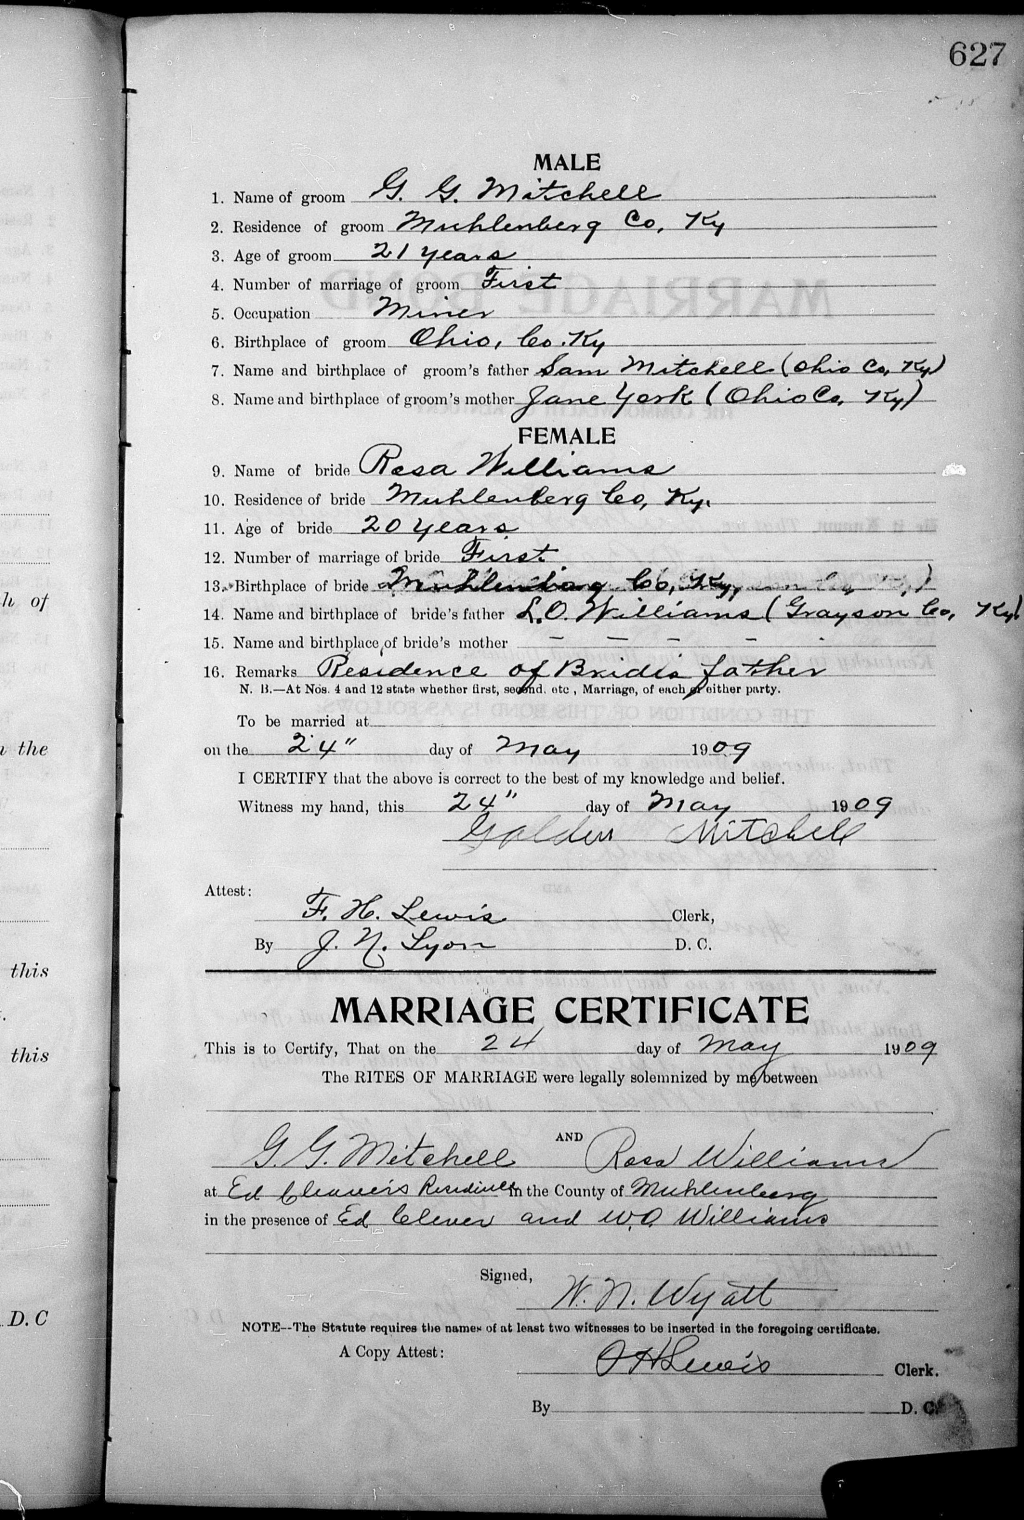 627
MALE
1. Name of groom G. G. Mitchell
2. Residence of groom Muhlenberg Co, Ky
3. Age of groom 21 years
4. Number of marriage of groom First
5. Occupation Miner
6. Birthplace of groom Ohio, Co. Ky
7. Name and birthplace of groom's father Sam Mitchell (Ohio Co, Ky)
8. Name and birthplace of groom's mother Jane York (Ohio Co, Ky)
FEMALE
9. Name of bride Rosa Williams
10. Residence of bride Muhlenberg Co, Ky.
11. Age of bride 20 years
12. Number of marriage of bride First
13. Birthplace of bride Muhlenberg Co, Ky,
14. Name and birthplace of bride's father L.O. Williams (Grayson Co, Ky)
h of
15. Name and birthplace of bride's mother — — — — —
16. Remarks Residence of Bride's father
N. B.—At Nos. 4 and 12 state whether first, second. etc , Marriage, of each or either party.
To be married at
n the
on the 24" day of May 1909
I CERTIFY that the above is correct to the best of my knowledge and belief.
Witness my hand, this 24" day of May 1909
Golden Mitchell
Attest:
F. H. Lewis Clerk,
By J. N. Lyon D. C.
this
MARRIAGE CERTIFICATE
This is to Certify, That on the 24 day of May 1909
this
The RITES OF MARRIAGE were legally solemnized by me between
G. G. Mitchell AND Rosa Williams
at Ed Cleaver's Residence in the County of Muhlenberg
in the presence of Ed Clever and W.O. Williams
Signed,
W. N. Wyatt
D. C
NOTE--The Statute requires the names of at least two witnesses to be inserted in the foregoing certificate.
A Copy Attest:
Lewis Clerk.
By D. C.